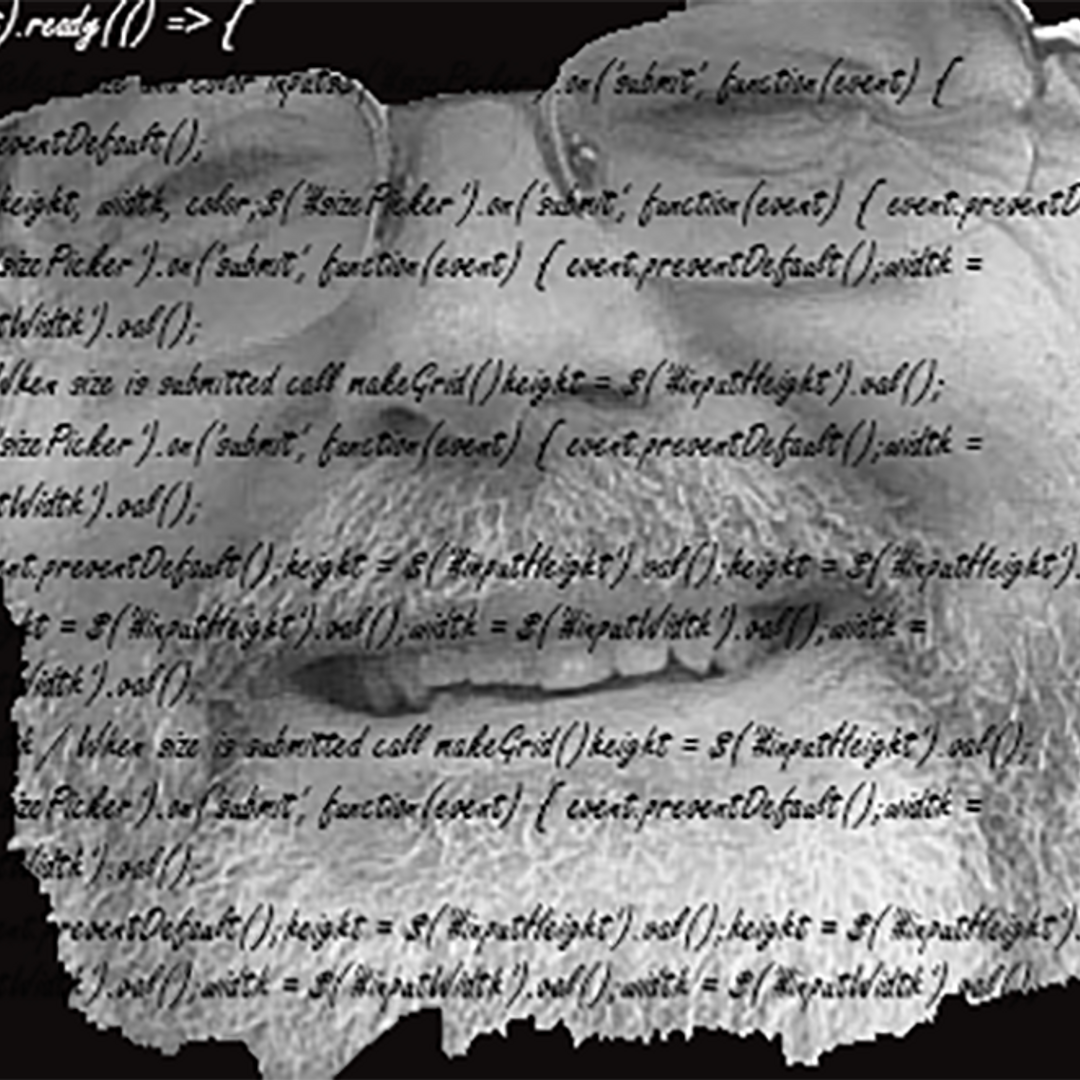 ).ready(() => {
Select size and color inputs$('#sizePicker').on('submit', function(event) {
eventDefault();
height, width, color;$('#sizePicker').on('submit', function(event) { event.preventD
sizePicker').on('submit', function(event) { event.preventDefault();width =
tWidth').val();
When size is submitted call makeGrid()height = $('#inputHeight').val();
sizePicker').on('submit', function(event) { event.preventDefault();width =
tWidth').val();
ent.preventDefault();height = $('#inputHeight').val();height = $('#inputHeight').
ht = $('#inputHeight').val();width = $('#inputWidth').val();width =
Width').val();
k / When size is submitted call makeGrid()height = $('#inputHeight').val();
izePicker').on('submit', function(event) { event.preventDefault();width =
Width').val();
nt.preventDefault();height = $('#inputHeight').val();height = $('#inputHeight').
tWidth').val();width = $('#inputWidth').val();width = $('#inputWidth').val();